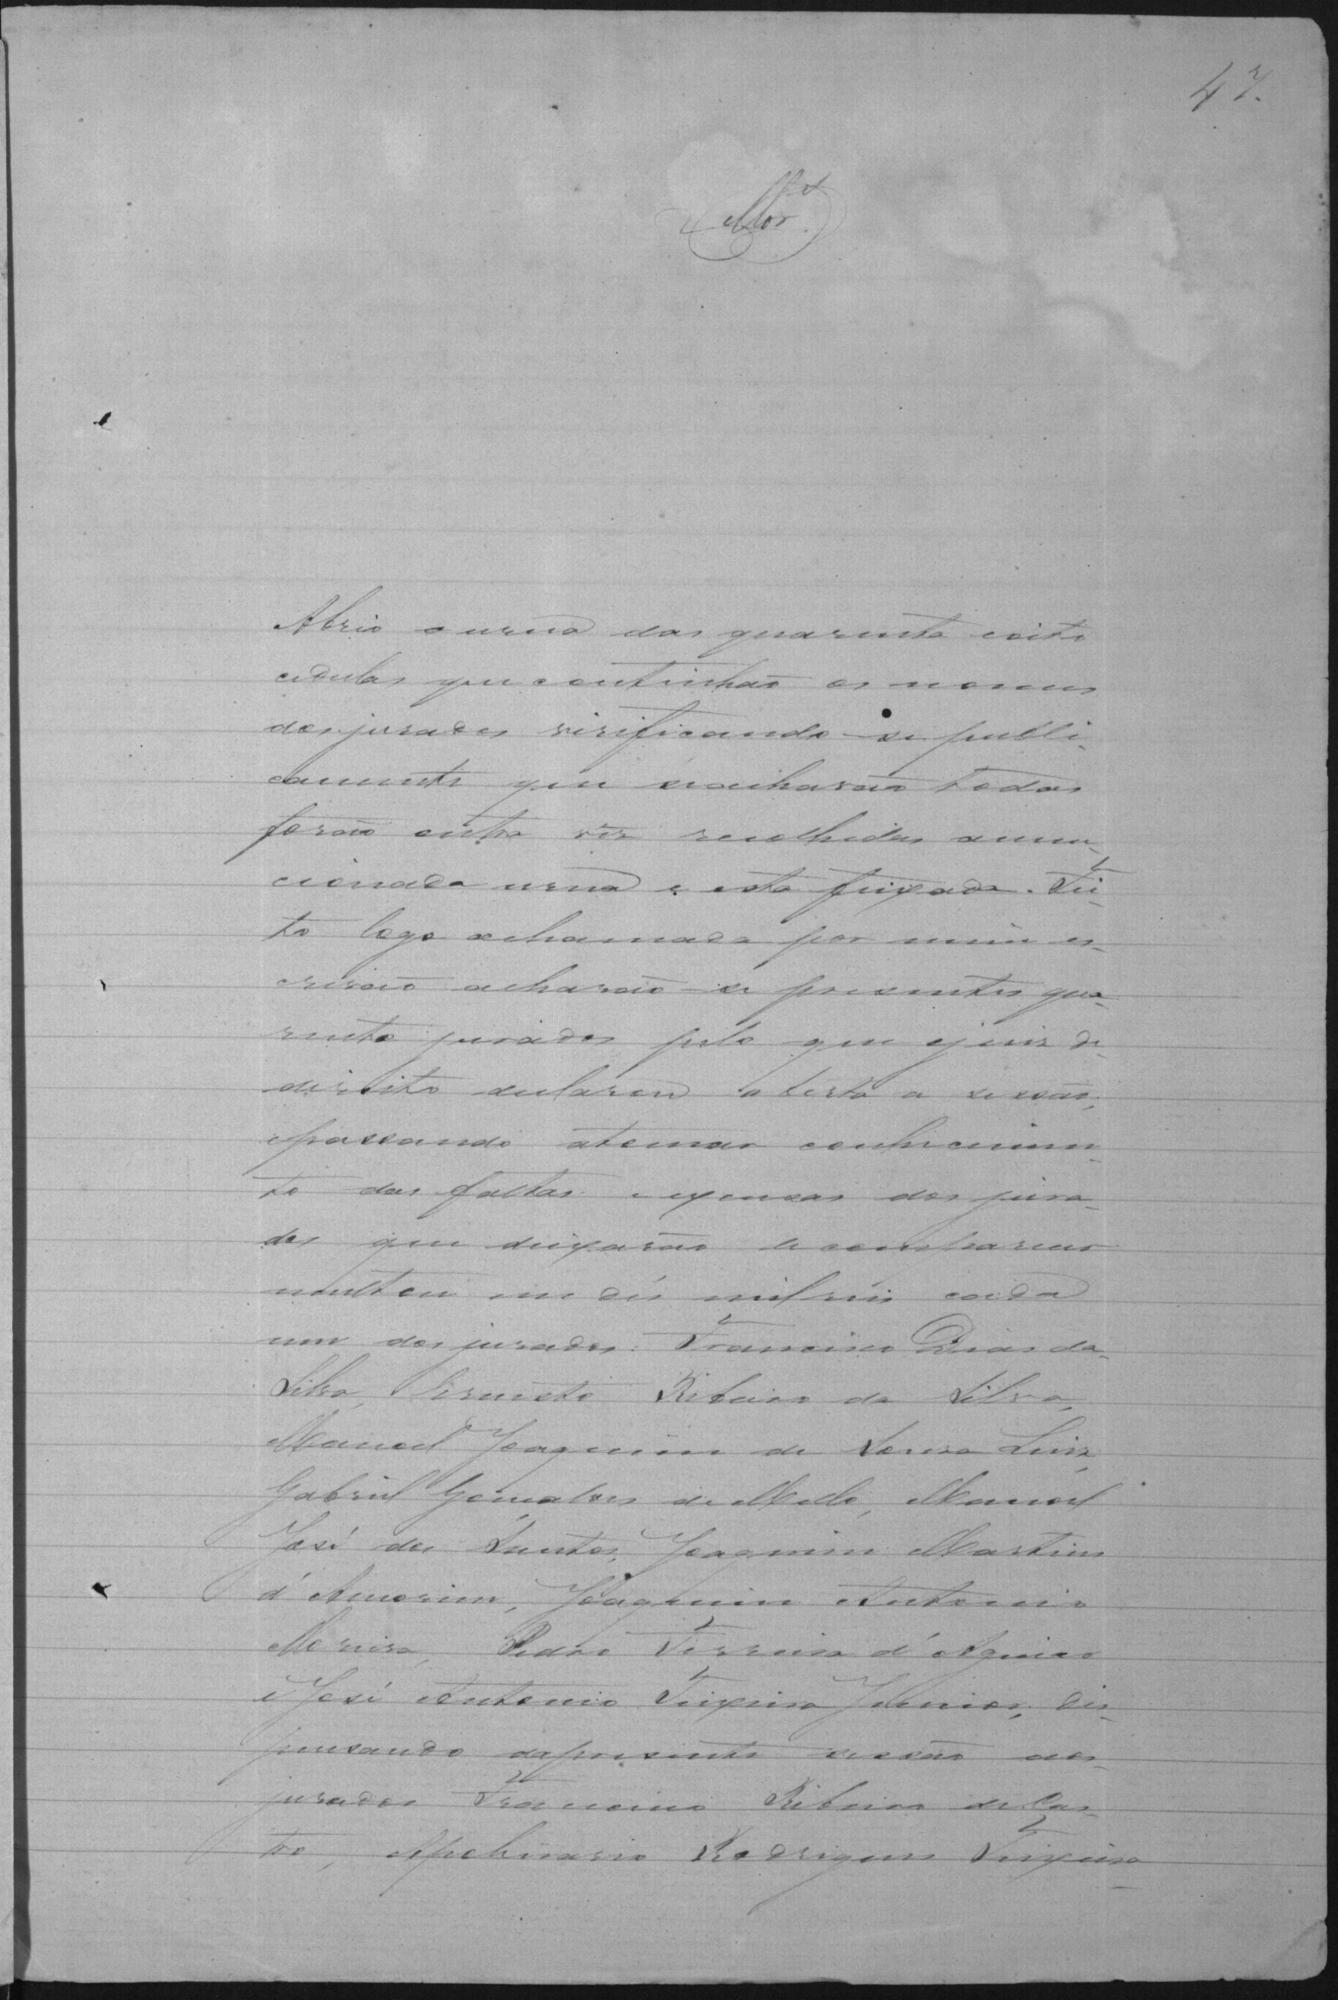 47.
Abrio a urna das quarenta e oito
cedulas que continhão os nomes
dos jurados virificando-se publi-
camente que se acharão todas
forão outra vêz recolhidas a men-
cionada urna e esta feixada. Fei-
to logo a chamada por mim es-
crivão acharão-se presentes qua-
renta jurados pelo que o juiz de
direito declarou aberta a sessão,
e passando a tomar conhecimen-
to das faltas e excusas dos jura-
dos que deixarão de comparecer
multou em dés mil réis cada
um dos jurados: Francisco Dias da
Silva, Ernesto Ribeiro da Silva,
Manoel Joaquim de Souza Luiz,
Gabriel Gonçalves de Mello, Manoel
José dos Santos, Joaquim Martins
d'Amorim, Joaquim Antonio
Moreira, Pedro Ferreira d'Aguiar
e José Antonio Teixeira Junior, dis-
pensando da presente sessão aos
jurados Francisco Ribeiro de Cas-
tro, Apolinario Rodrigues Teixeira